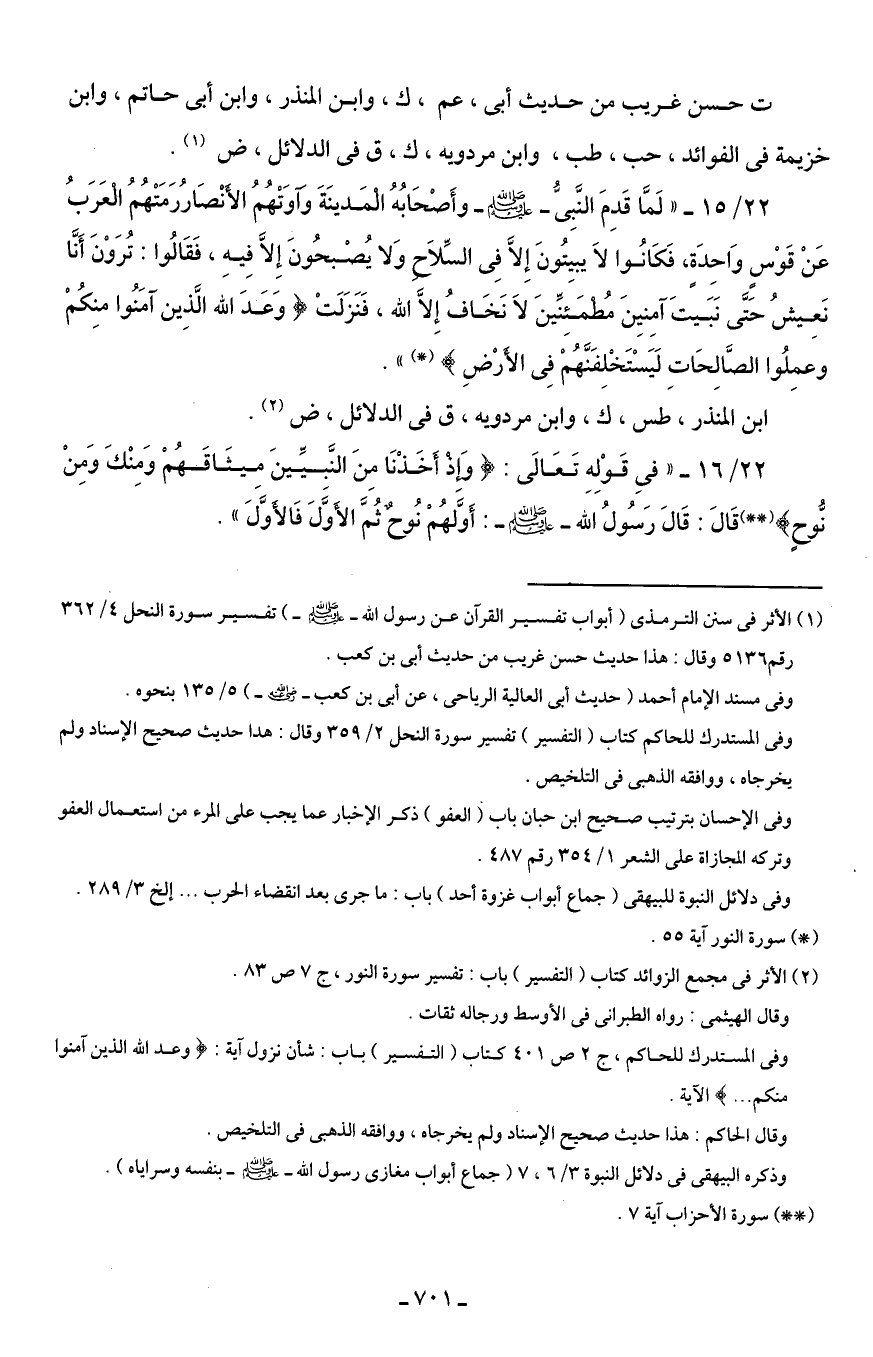 ت حسن غريب من حديث أبى ، عم ، ك ، وابن المنذر ، وابن أبى حاتم ، وابن
خزيمة فى الفوائد ، حب ، طب ، وابن مردويه ، ك ، ق فى الدلائل ، ض (١) .
٢٢/ ١٥ ـ « لَمَّا قَدِمَ النَّبىُّ ـ ﷺ ـ وأَصْحَابُهُ المَدينَةَ وَآوَتْهُمُ الأَنْصَارُ رَمَتْهُمُ الْعَرَبُ
عَنْ قَوْسٍ وَاحِدَةٍ، فَكَانُوا لاَ يبيتُونَ إِلاَّ فِى السِّلاَحِ وَلا يُصْبِحُونَ إِلاَّ فيه ، فَقَالُوا : تُرَوْنَ أَنَّا
نَعِيشُ حَتَّى نَبِيتَ آمِنينَ مُطْمَئِنِّينَ لاَ نَخَافُ إِلاَّ الله ، فَنَزَلَتْ ﴿ وَعَدَ الله الَّذِين آمَنُوا منكُمْ
وعمِلُوا الصَّالِحَاتِ لَيَسْتَخْلِفَنَّهُمْ فِى الأَرْضِ ﴾ (*) » .
ابن المنذر ، طس ، ك ، وابن مردويه ، ق فى الدلائل ، ض (٢) .
٢٢/ ١٦ ـ « فى قَوْلِهِ تَعَالَى : ﴿ وَإِذْ أَخَذْنَا مِنَ النَّبِيِّينَ مِيثَاقَهُمْ وَمِنْكَ وَمِنْ
نُّوحٍ﴾(**)قَالَ : قَالَ رَسُولُ الله ـ ﷺ ـ : أَوَّلُهُمْ نُوحٌ ثُمَّ الأَوَّلَ فَالأَوَّلَ » .
(١) الأثر فى سنن الترمذى ( أبواب تفسير القرآن عن رسول الله ـ ﷺ ـ ) تفسير سورة النحل ٤/ ٣٦٢
رقم٥١٣٦ وقال : هذا حديث حسن غريب من حديث أبى بن كعب .
وفى مسند الإمام أحمد ( حديث أبى العالية الرياحى ، عن أبى بن كعب ـ رضي الله عنه ـ ) ٥/ ١٣٥ بنحوه .
وفى المستدرك للحاكم كتاب ( التفسير ) تفسير سورة النحل ٢/ ٣٥٩ وقال : هذا حديث صحيح الإسناد ولم
يخرجاه ، ووافقه الذهبى فى التلخيص .
وفى الإحسان بترتيب صحيح ابن حبان باب ( العفو ) ذكر الإخبار عما يجب على المرء من استعمال العفو
وتركه المجازاة على الشعر ١/ ٣٥٤ رقم ٤٨٧ .
وفى دلائل النبوة للبيهقى ( جماع أبواب غزوة أحد ) باب : ما جرى بعد انقضاء الحرب ... إلخ ٣/ ٢٨٩ .
(*) سورة النور آية ٥٥ .
(٢) الأثر فى مجمع الزوائد كتاب ( التفسير ) باب : تفسير سورة النور ، ج ٧ ص ٨٣ .
وقال الهيثمى : رواه الطبرانى فى الأوسط ورجاله ثقات .
وفى المستدرك للحاكم ، ج ٢ ص ٤٠١ كتاب ( التفسير ) باب : شأن نزول آية : ﴿ وعد الله الذين آمنوا
منكم... ﴾ الآية .
وقال الحاكم : هذا حديث صحيح الإسناد ولم يخرجاه ، ووافقه الذهبى فى التلخيص .
وذكره البيهقى فى دلائل النبوة ٣/ ٦ ، ٧ ( جماع أبواب مغازى رسول الله ـ ﷺ ـ بنفسه وسراياه ) .
(**) سورة الأحزاب آية ٧ .
ـ ٧٠١ ـ